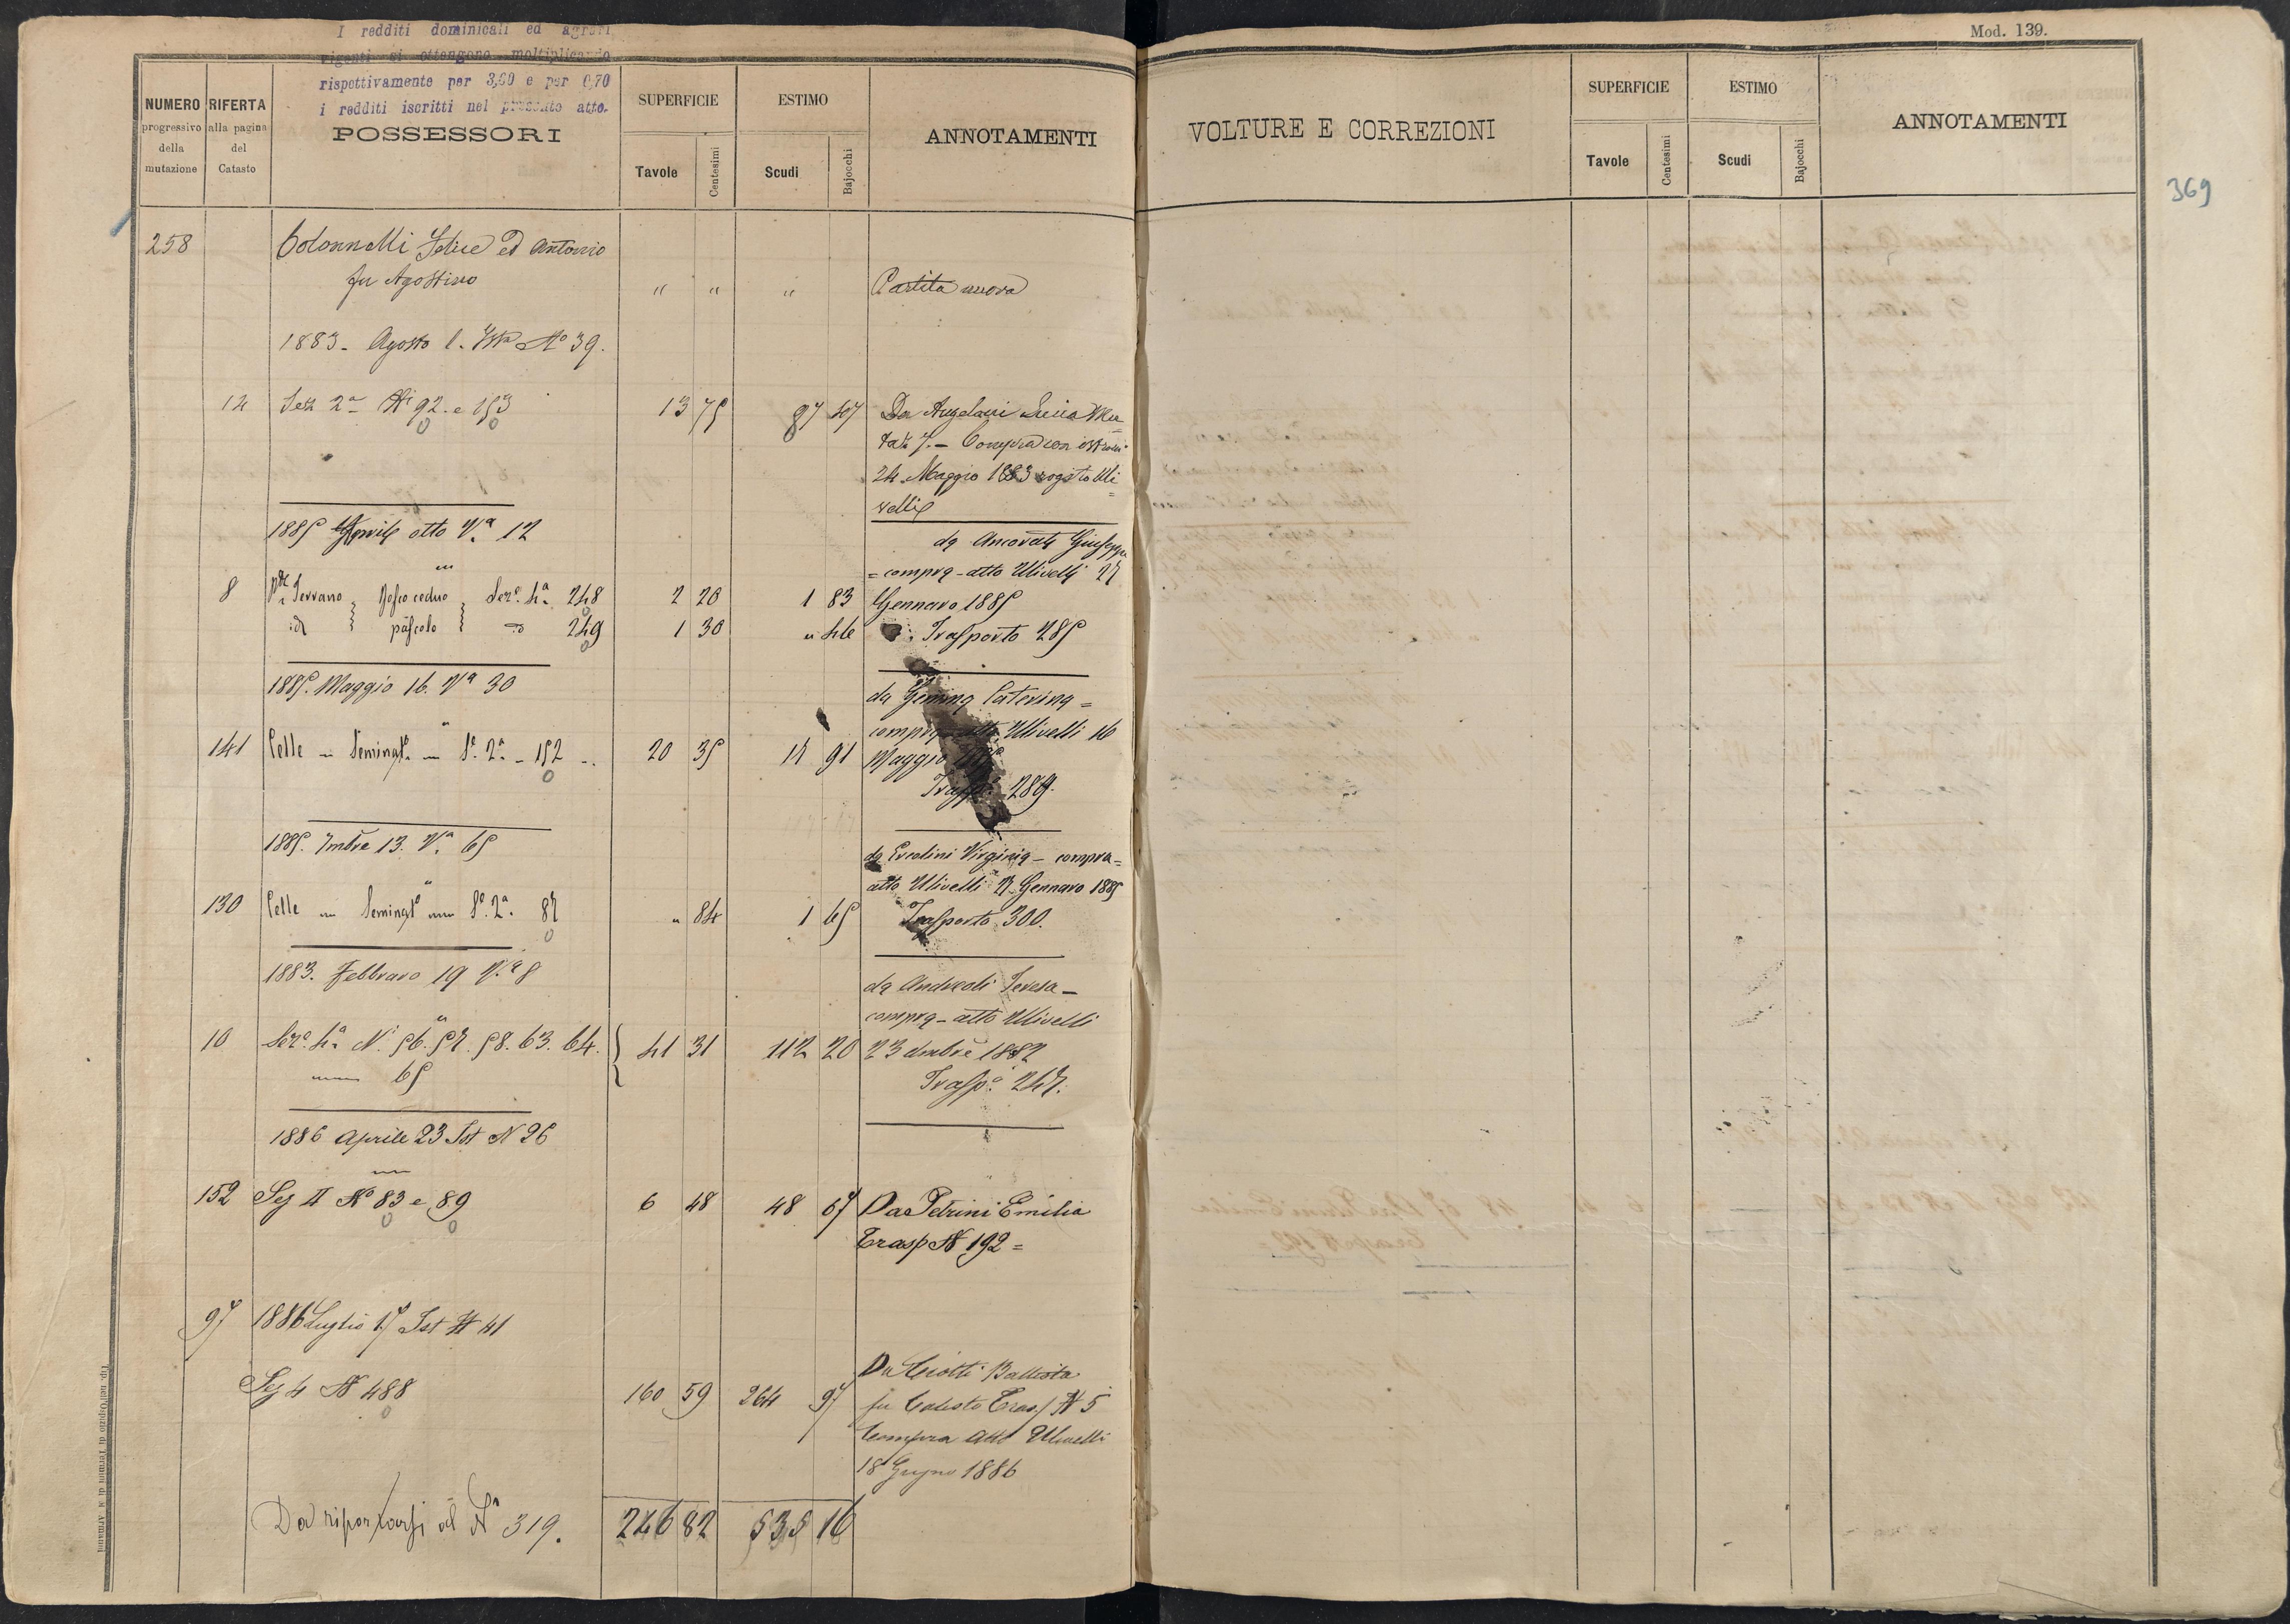 I redditi dominicali ed agrari
vigenti si ottengono moltiplicando
rispettivamente per 3,60 e per 0,70
i redditi iscritti nel presente atto.
NUMERO progressivo della mutazione
RIFERTA alla pagina del Catasto
POSSESSORI
SUPERFICIE
Tavole
Centesimi
ESTIMO
Scudi
Bajocchi
ANNOTAMENTI
258 Colonnelli Felice ed Antonio
fu Agostino " " " Partita nuova
1883 - Agosto 1. Ista No 39.
14 Sez 2a Ni 92. e 153 13 75 97 47 Da Angelani Lucia Mu
taz 7. - Compra con
24 Maggio 1883 rogito Uli
velli
1885 Aprile otto Va 12
da Ancorati Giuseppe
= compra - atto Ulivelli 27
8 Terrano bosco ceduo Seze 4a 248 2 20 1 83 Gennaro 1885
id pascolo do 249 1 30 " 46 Trasporto 285
1885. Maggio 16. Va 30
da Gemma Caterina =
compra atto Ulivelli 16
141 Celle Seminato Se 2a - 152 20 35 17 91 Maggio
Traspo 289.
1885. 7mbre 13. Va 65
da Ercolini Virginia - compra =
atto Ulivelli 27 Gennaro 1885
130 Celle Seminato Se 2a. 87 " 84 1 65 Trasporto 300.
1883. Febbraro 19 Va 8
da Andreoli Teresa -
compra - atto Ulivelli
10 Seze 4a Ni 56. 57. 58. 63. 64. 41 31 112 20 23 dmbre 1882
65
Traspo 247.
1886 Aprile 23 Ist N 26
152 Sez II No 83 e 89 6 48 48 67 Da Petrini Emilia
Trasp N 192 =
97 1886 Luglio 17 Ist N 41
Da Battista
Sez 4 N 488 160 59 264 97 fu Calisto Trasp N 5
Compra Atto Ulivelli
18 Giugno 1886
Da riportarsi al No 319. 246 82 535 16
Mod. 139.
VOLTURE E CORREZIONI
SUPERFICIE
Tavole
Centesimi
ESTIMO
Scudi
Bajocchi
ANNOTAMENTI
369